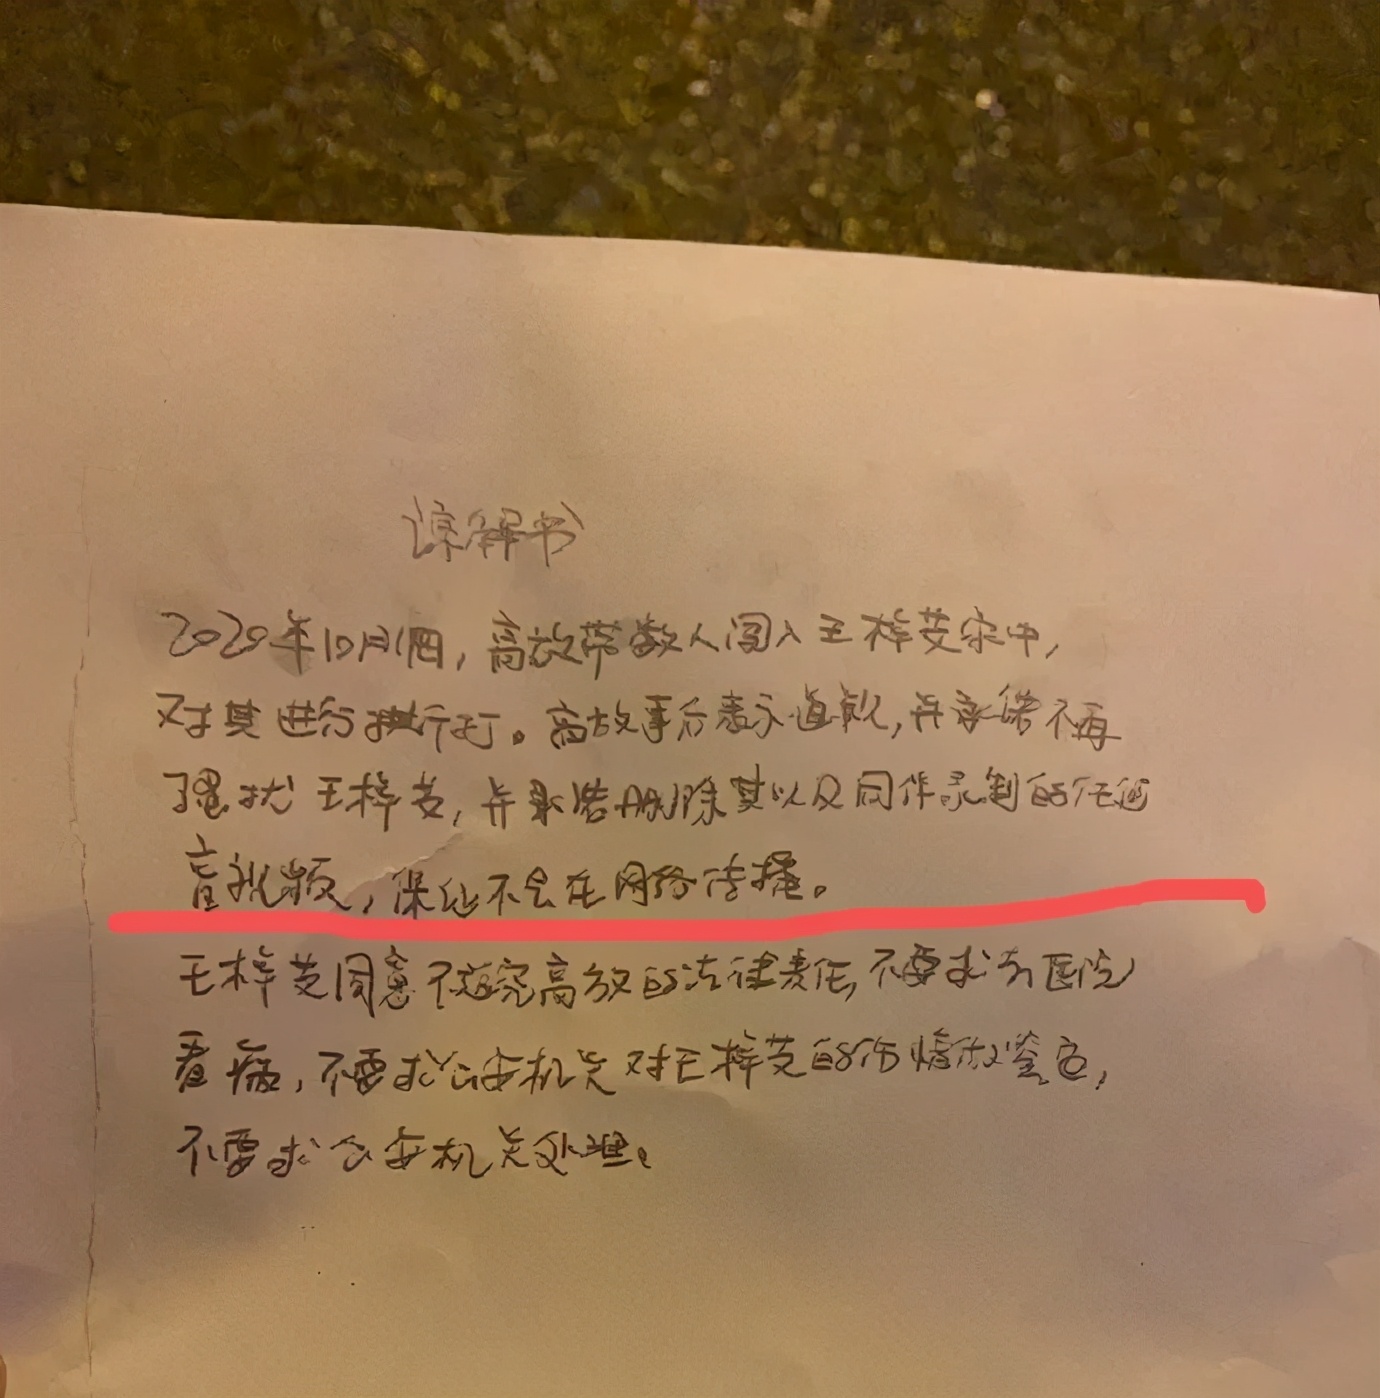 谅解书
2020年10月1日, 高放带数人闯入王梓芠家中,
对其进行挑行打。高放事后表示道歉, 并承诺不再
骚扰王梓芠, 并承诺删除其以及同伴录制的任何
音视频, 保证不会在网络传播。
王梓芠同意不追究高放的法律责任, 不要求去医院
看病, 不要求公安机关对王梓芠的伤情做鉴定,
不要求公安机关处理。